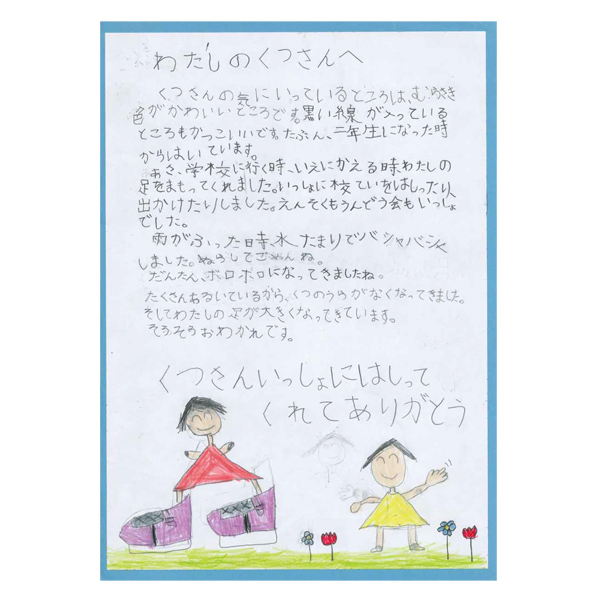 わたしのくつさんへ
くつさんの気にいっているところは、むらさき
色がかわいいところです。黒い線が入っている
ところもかっこいいです。たぶん、二年生になった時
からはいています。
あさ、学校に行く時、いえにかえる時、わたしの
足をまもってくれました。いっしょに校ていをはしったり、
出かけたりしました。えんそくもうんどう会もいっしょ
でした。
雨がふった時水たまりでバシャバシャ
しました。ぬらしてごめんね。
だんだん、ボロボロになってきましたね。
たくさんあるいているから、くつのうらがなくなってきました。
そしてわたしの足が大きくなってきています。
そろそろおわかれです。
くつさんいっしょにはしって
くれてありがとう